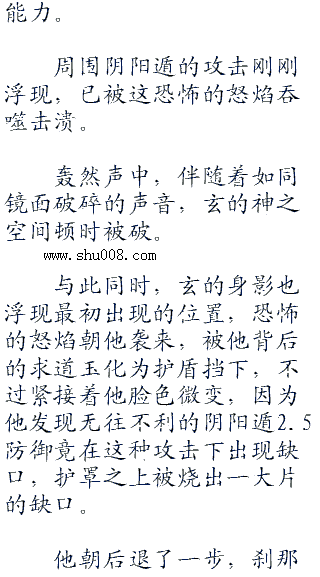 能力。
周围阴阳遁的攻击刚刚
浮现，已被这恐怖的怒焰吞
噬击溃。
轰然声中，伴随着如同
镜面破碎的声音，玄的神之
空间顿时被破。
www.shu008.com
与此同时，玄的身影也
浮现最初出现的位置，恐怖
的怒焰朝他袭来，被他背后
的求道玉化为护盾挡下，不
过紧接着他脸色微变，因为
他发现无往不利的阴阳遁2.5
防御竟在这种攻击下出现缺
口，护罩之上被烧出一大片
的缺口。
他朝后退了一步，刹那